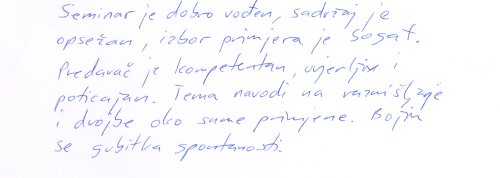 Seminar je dobro vođen, sadržaj je
opsežan, izbor primjera je bogat.
Predavač je kompetentan, uvjerljiv i
poticajan. Tema navodi na razmišljanje
i dvojbe oko same primjene. Bojim
se gubitka spontanosti